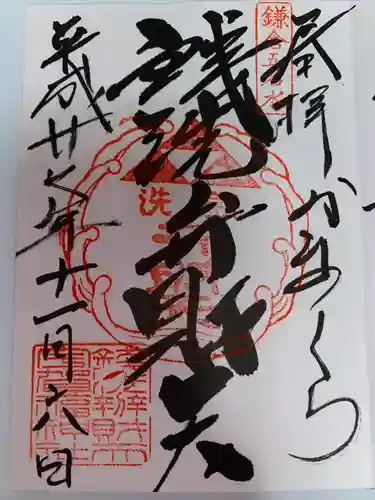 鎌倉五名水
奉拝 かまくら
銭洗弁財天
洗
平成廿七年十一月六日